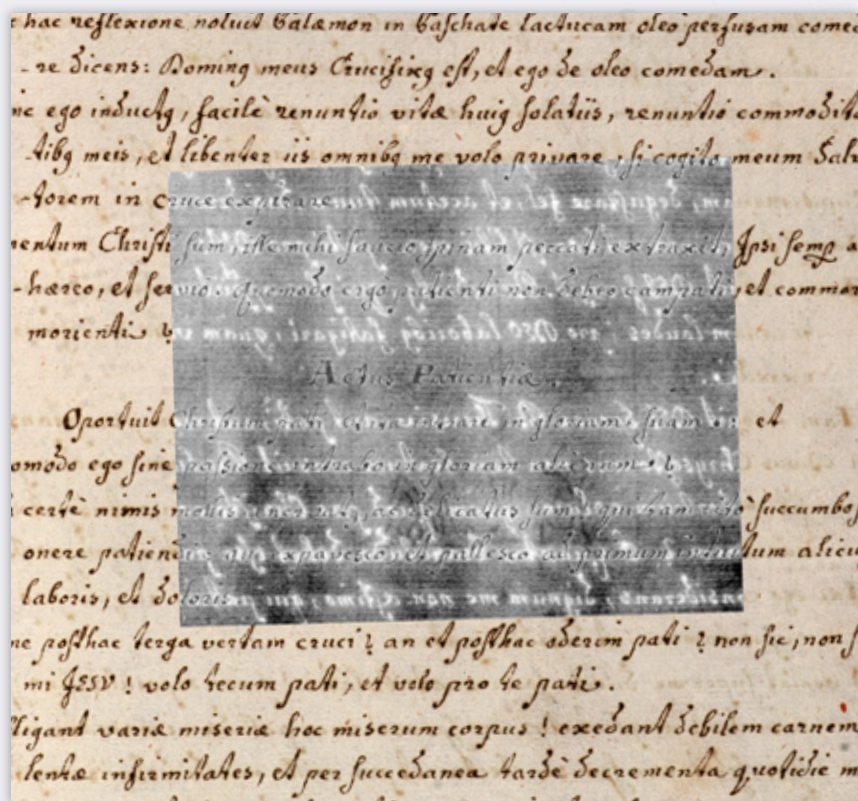 hac reflexione noluit Salæmon in Paschate lactucam oleo perfusam comed
-re dicens: Dominꝰ meus Crucifixꝰ est, et ego de oleo comedam.
ego inductꝰ, facilè renuntio vitæ huiꝰ solatiis, renuntio commodita
-tibꝰ meis, et libenter iis omnibꝰ me volo privare, si cogito meum Salv
-torem in cruce expirare
Christi sum, ille mihi saucio spinam peccati extraxit, Ipsi semp
-hæreo, et servio. Quomodo ergo patienti non debeo compati, et commor
morienti
Actus Patientiæ.
Oportuit Christum pati, et ita intrare in gloriam suam: et
omodo ego sine passione intrabo in gloriam alienam?
certè nimis mollis delicatus sum, qui tam citò succumbo
onere patiendi expavesco et pallesco ad primum intuitum alicu
laboris, et doloris
posthac terga vertam cruci? an et posthac oderim pati? non sic, non
mi JESU! volo tecum pati, et volo pro te pati.
fligant variæ miseriæ hoc miserum corpus! exedant debilem carnem
lentæ infirmitates, et per succedanea tardè decrementa quotidie m